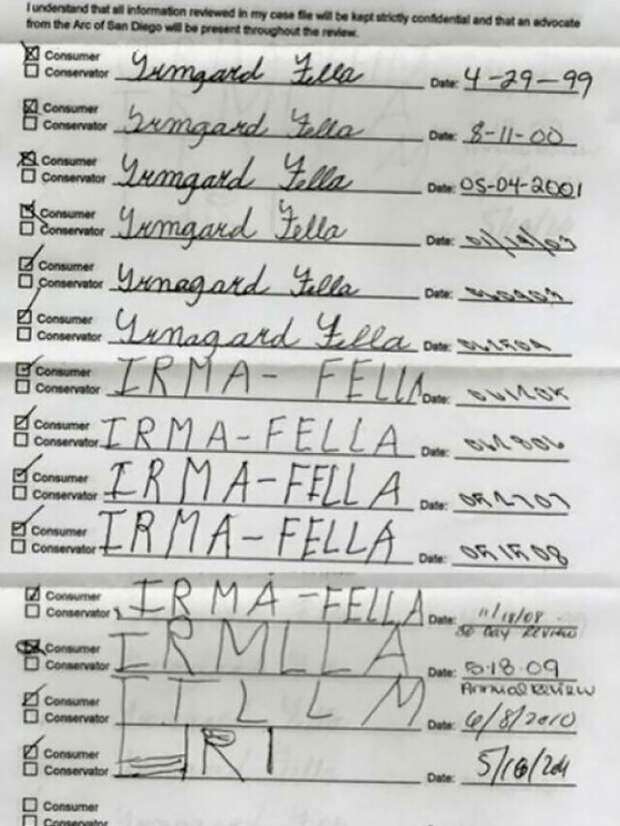 I understand that all information reviewed in my case file will be kept strictly confidential and that an advocate
from the Arc of San Diego will be present throughout the review.
Consumer
Conservator Yrmgard Fella Date: 4-29-99
Consumer
Conservator Yrmgard Fella Date: 8-11-00
Consumer
Conservator Yrmgard Fella Date: 05-04-2001
Consumer
Conservator Yrmgard Fella Date: 01/19/03
Consumer
Conservator Yrnagard Fella Date:
Consumer
Conservator Yrnagard Fella Date:
Consumer
Conservator IRMA- FELLA Date:
Consumer
Conservator IRMA-FELLA Date:
Consumer
Conservator IRMA-FELLA Date:
Consumer
Conservator IRMA-FELLA Date: 051508
Consumer
Conservator IRMA-FELLA Date: 11/18/08
30 DAY REVIEW
Consumer
Conservator IRMLLA Date: 5-18-09
Annual Review
Consumer
Conservator ITLLM Date: 6/8/2010
Consumer
Conservator IRI Date: 5/16/2011
Consumer
Conservator